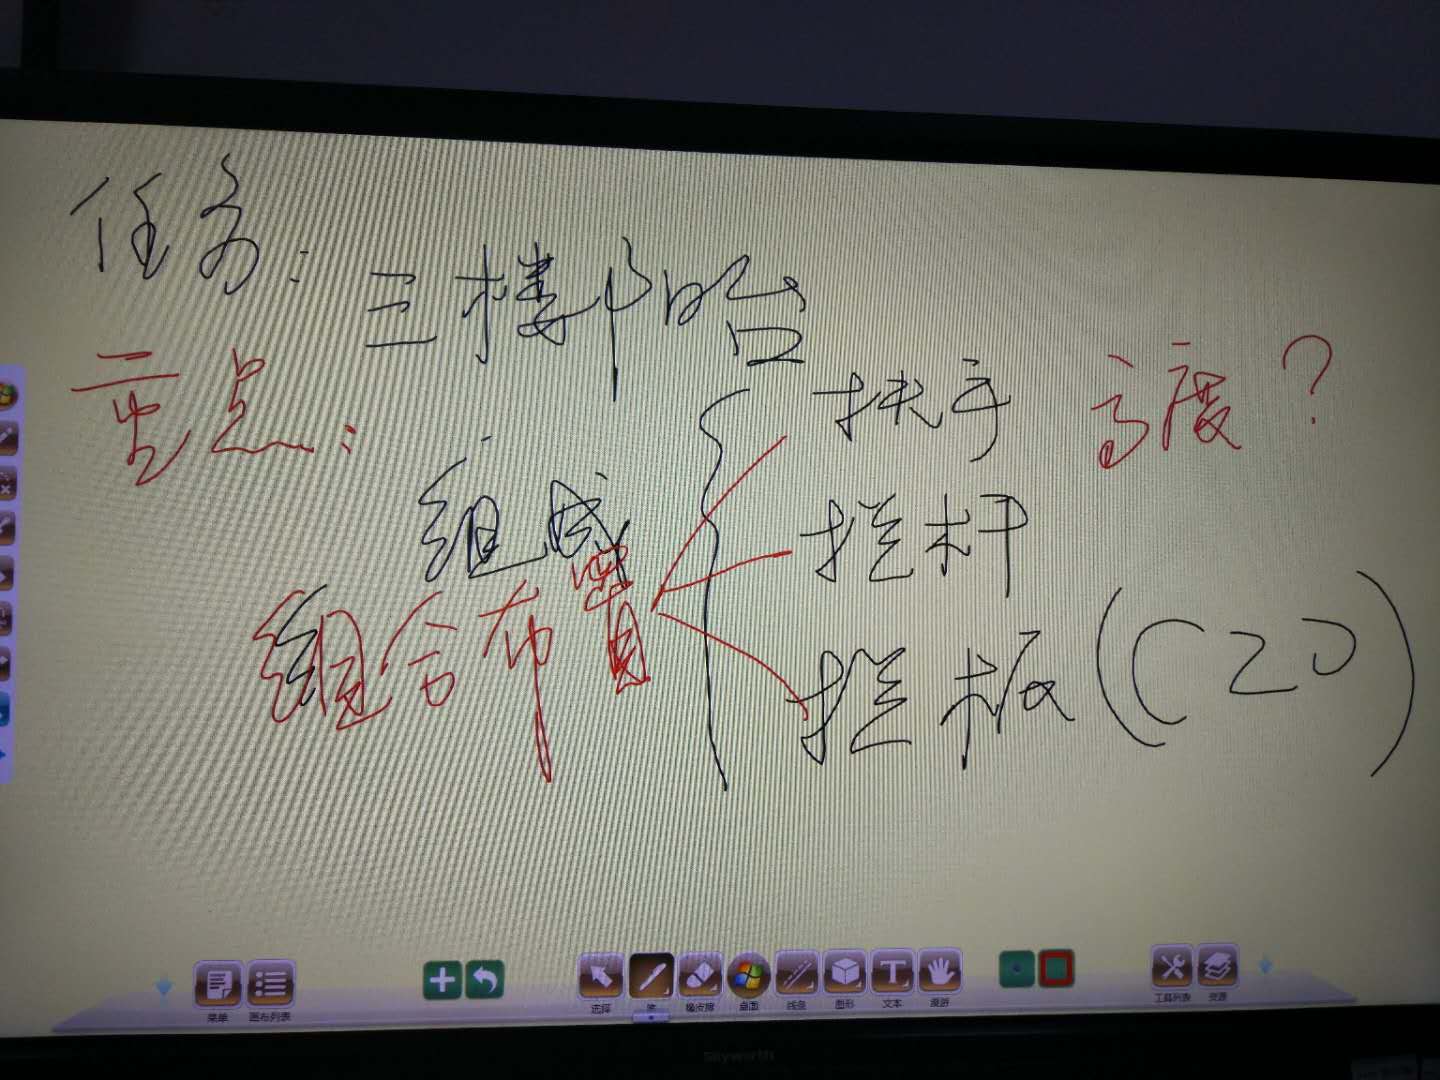 任务：
三楼阳台
重点：
扶手 高度？
组成
栏杆
组合布置
栏板（C20）
菜单
画布列表
选择
笔
橡皮擦
桌面
线条
图形
文本
漫游
工具列表
资源
Skyworth